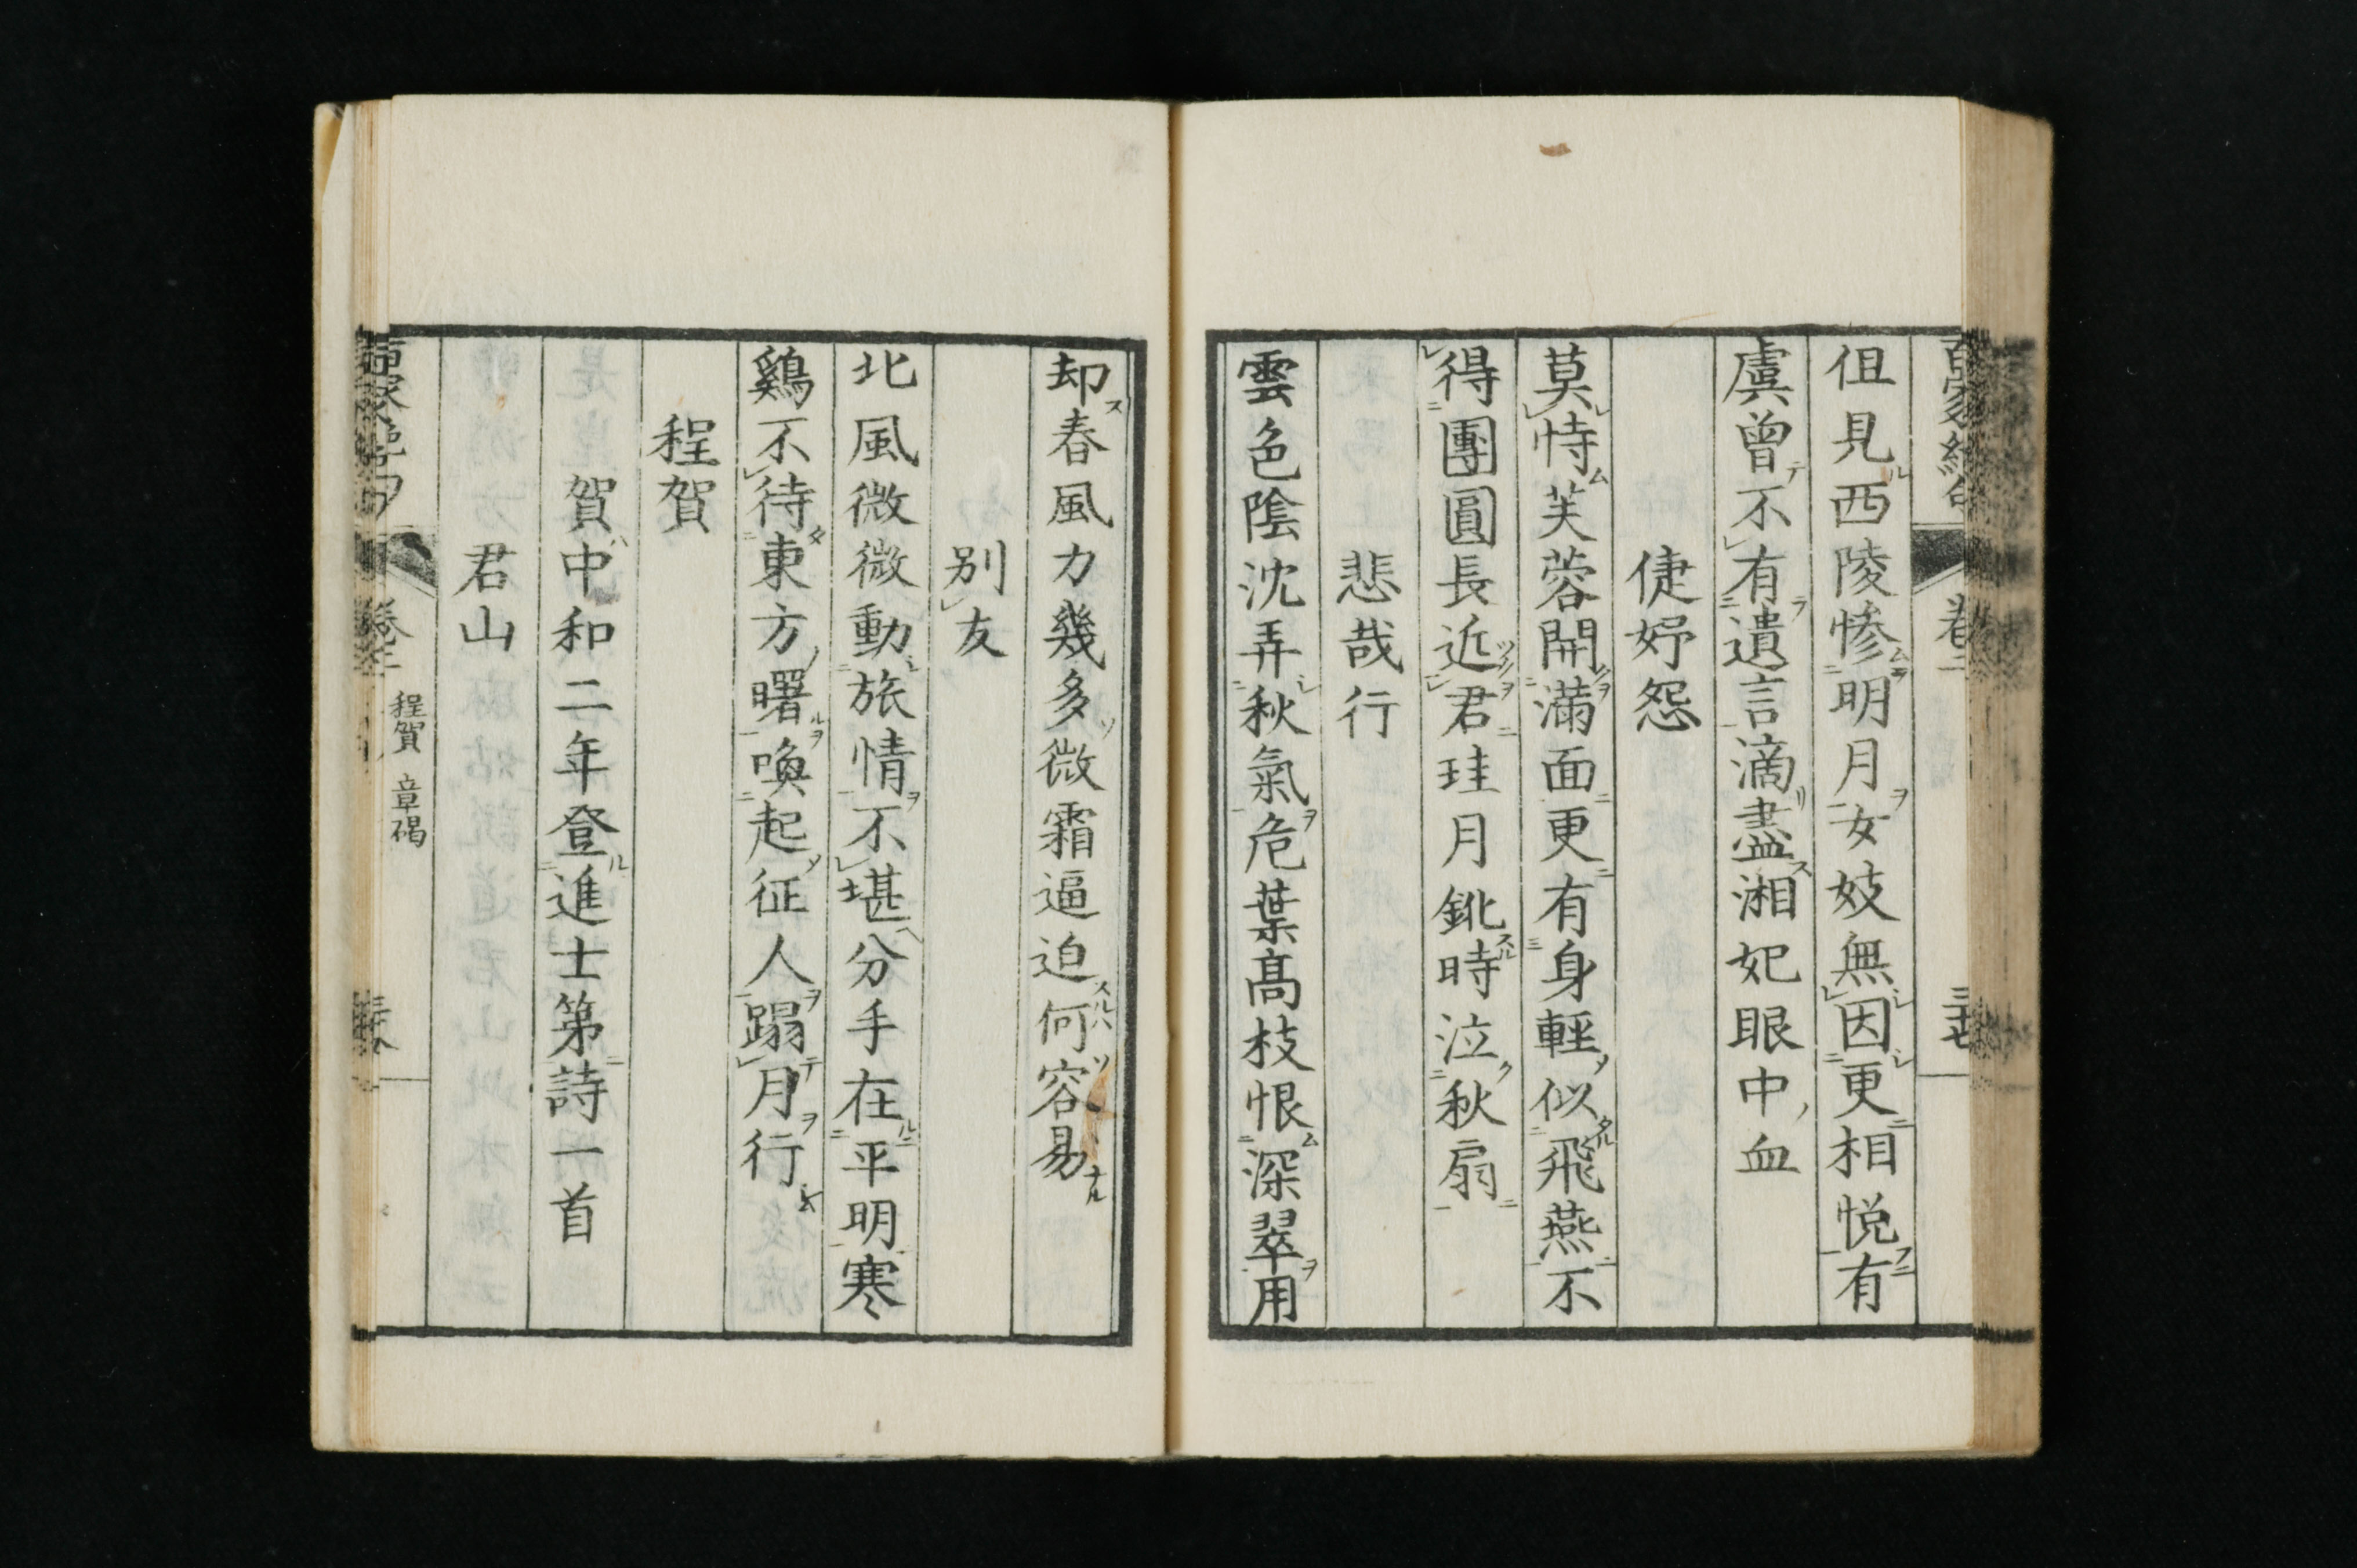 但見西陵慘明月女妓無因更相悦有
虞曾不有遺言滴盡湘妃眼中血
倢妤怨
莫恃芙蓉開滿面更有身輕似飛燕不
得團圓長近君珪月鈚時泣秋扇
悲哉行
雲色陰沈弄秋氣危葉髙枝恨深翠用
却春風力幾多微霜逼迫何容易
别友
北風微微動旅情不堪分手在平明寒
鷄不待東方曙喚起征人蹋月行
程賀
賀中和二年登進士第詩一首
君山
程賀 章碣